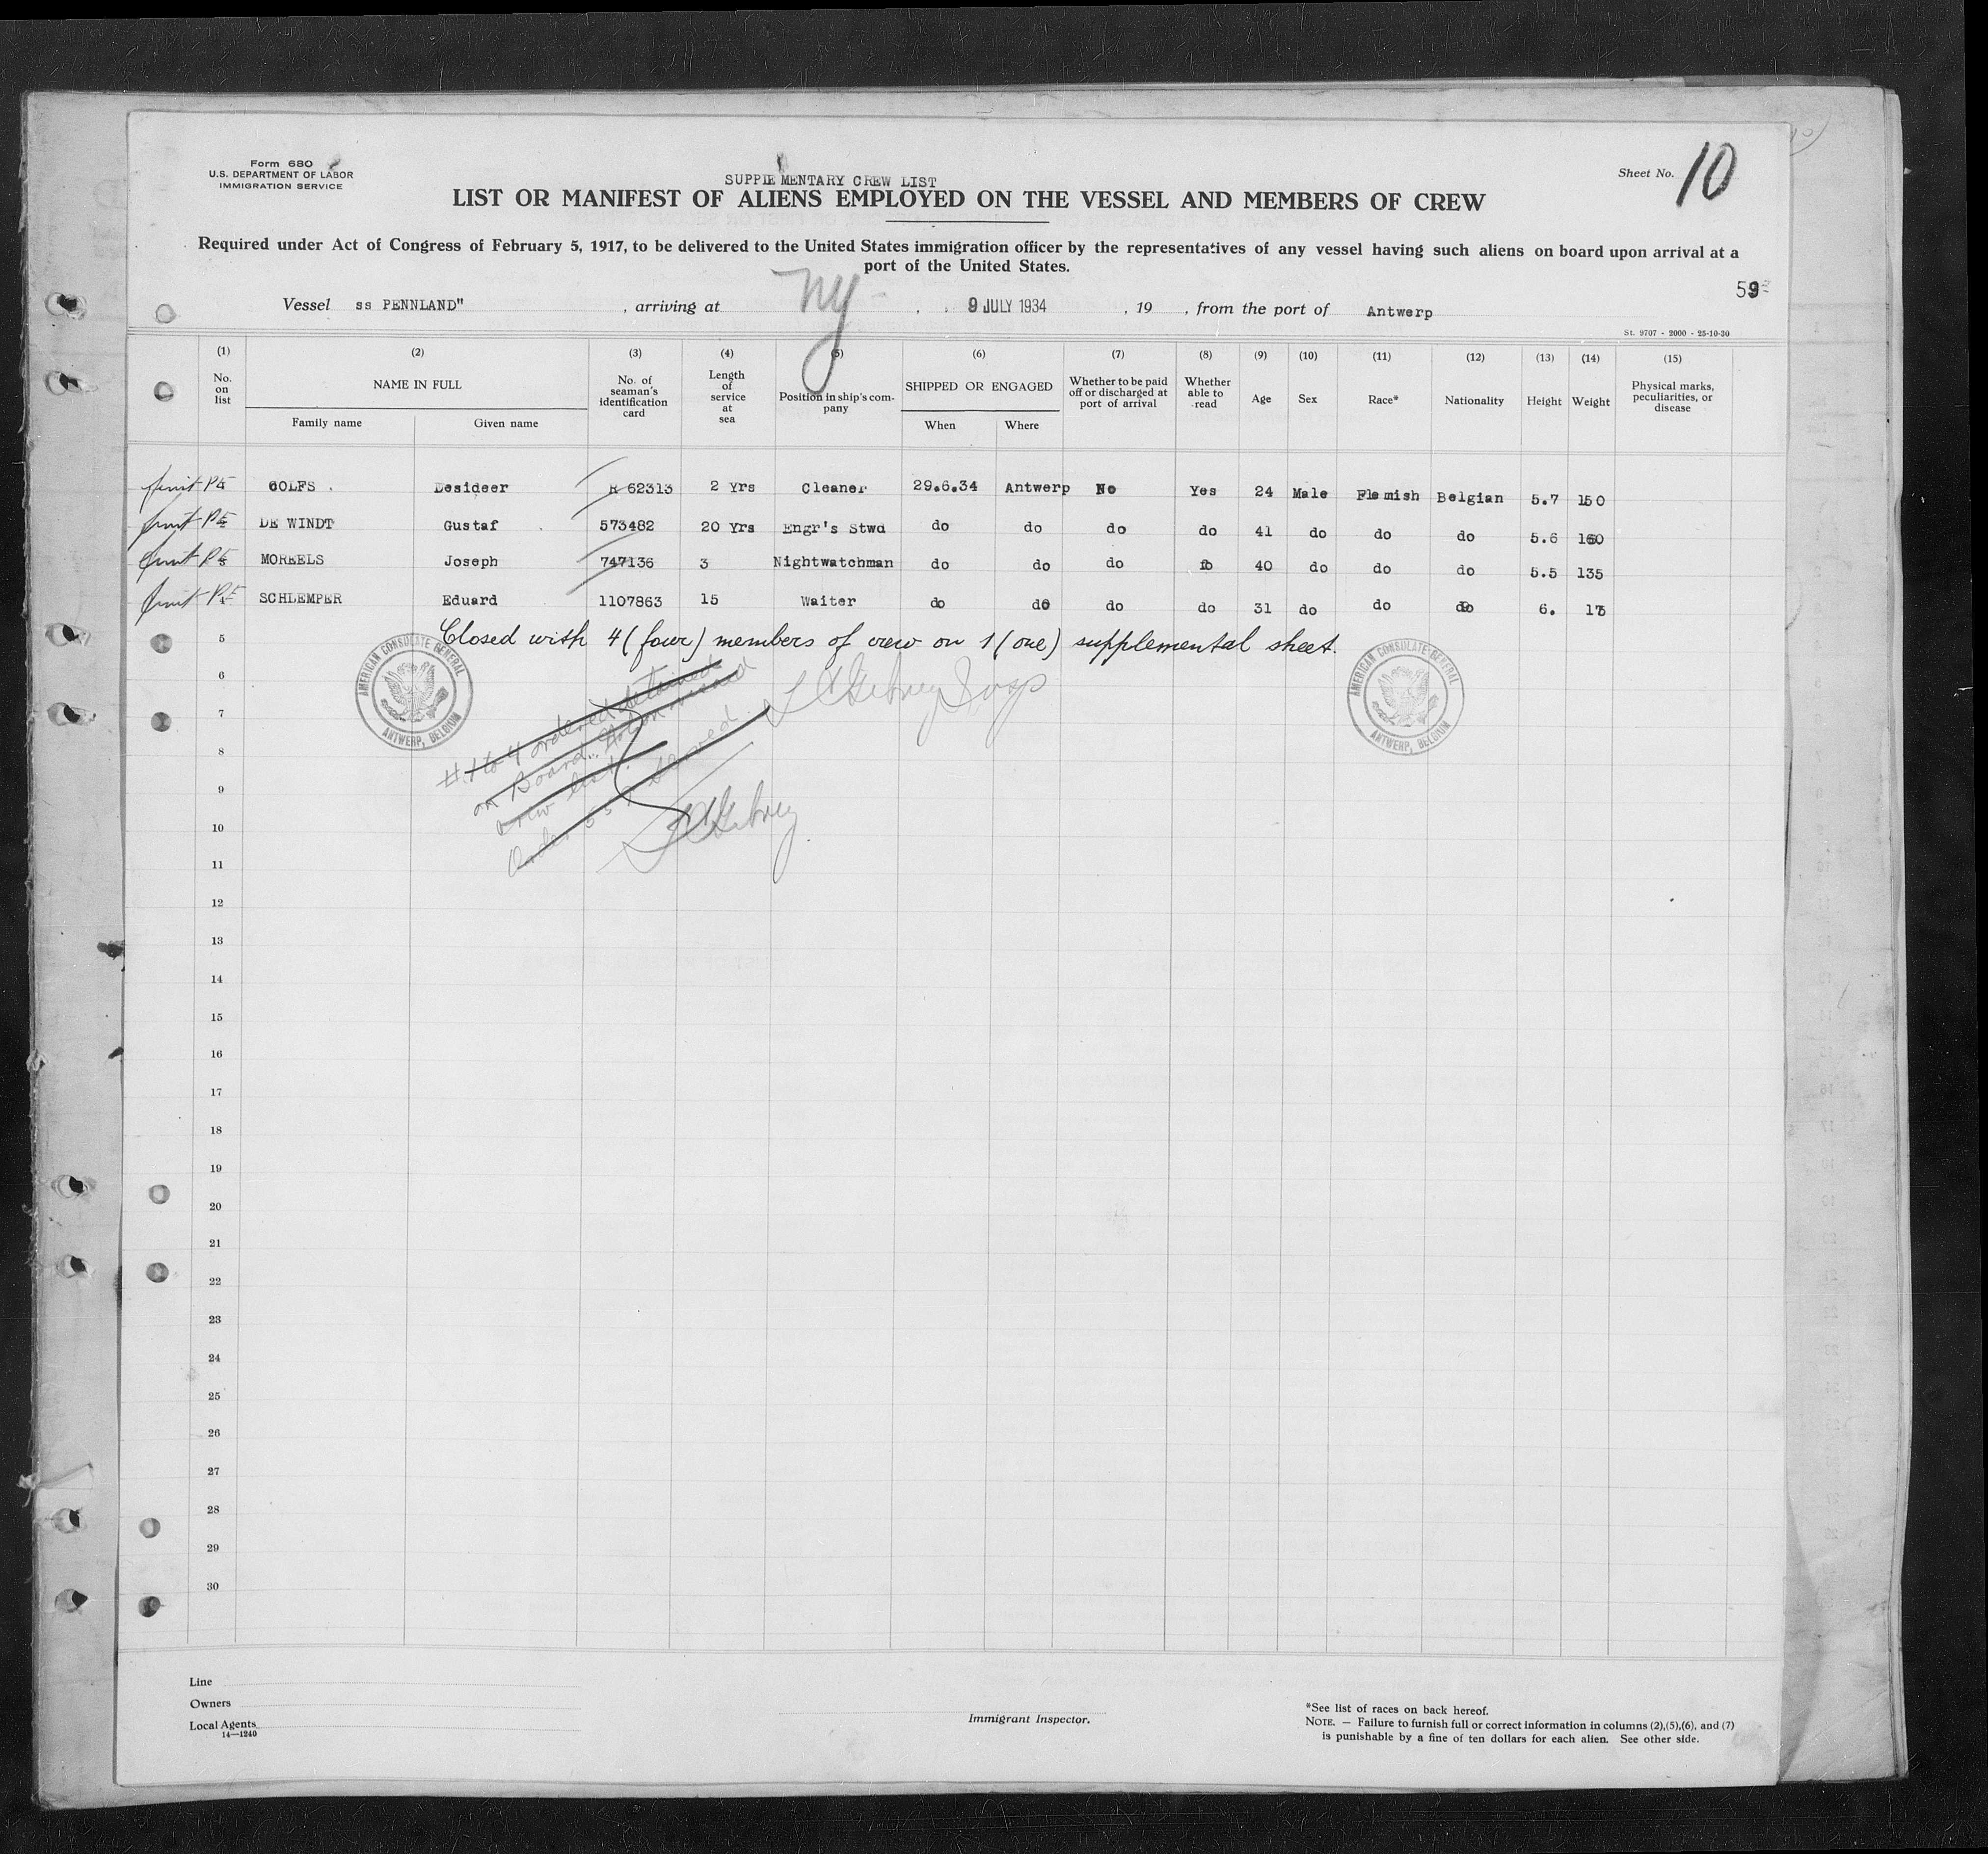 Form 680
U.S. DEPARTMENT OF LABOR
IMMIGRATION SERVICE
Sheet No. 10
SUPPLEMENTARY CREW LIST
LIST OR MANIFEST OF ALIENS EMPLOYED ON THE VESSEL AND MEMBERS OF CREW
Required under Act of Congress of February 5, 1917, to be delivered to the United States immigration officer by the representatives of any vessel having such aliens on board upon arrival at a
port of the United States.
Vessel ss PENNLAND" , arriving at NY , 9 JULY 1934 , 19 , from the port of Antwerp
St. 9707 - 2000 - 25-10-30
(1) (2) (3) (4) (5) (6) (7) (8) (9) (10) (11) (12) (13) (14) (15)
No. on list NAME IN FULL No. of seaman's identification card Length of service at sea Position in ship's company SHIPPED OR ENGAGED Whether to be paid off or discharged at port of arrival Whether able to read Age Sex Race* Nationality Height Weight Physical marks, peculiarities, or disease
Family name Given name When Where
GOLFS Desideer R 62313 2 Yrs Cleaner 29.6.34 Antwerp No Yes 24 Male Flemish Belgian 5.7 150
DE WINDT Gustaf 573482 20 Yrs Engr's Stwd do do do do 41 do do do 5.6 160
MOREELS Joseph 747136 3 Nightwatchman do do do do 40 do do do 5.5 135
SCHLEMPER Eduard 1107863 15 Waiter do do do do 31 do do do 6.
5 Closed with 4 (four) members of crew on 1 (one) supplemental sheet.
AMERICAN CONSULATE GENERAL
ANTWERP, BELGIUM
AMERICAN CONSULATE GENERAL
ANTWERP, BELGIUM
6
# 1 to 4 ordered detained
7
on Board
8
crew list
9
10
11
12
13
14
15
16
17
18
19
20
21
22
23
24
25
26
27
28
29
30
Line
Owners
Local Agents
14—1240
Immigrant Inspector.
*See list of races on back hereof.
NOTE. — Failure to furnish full or correct information in columns (2),(5),(6), and (7)
is punishable by a fine of ten dollars for each alien. See other side.